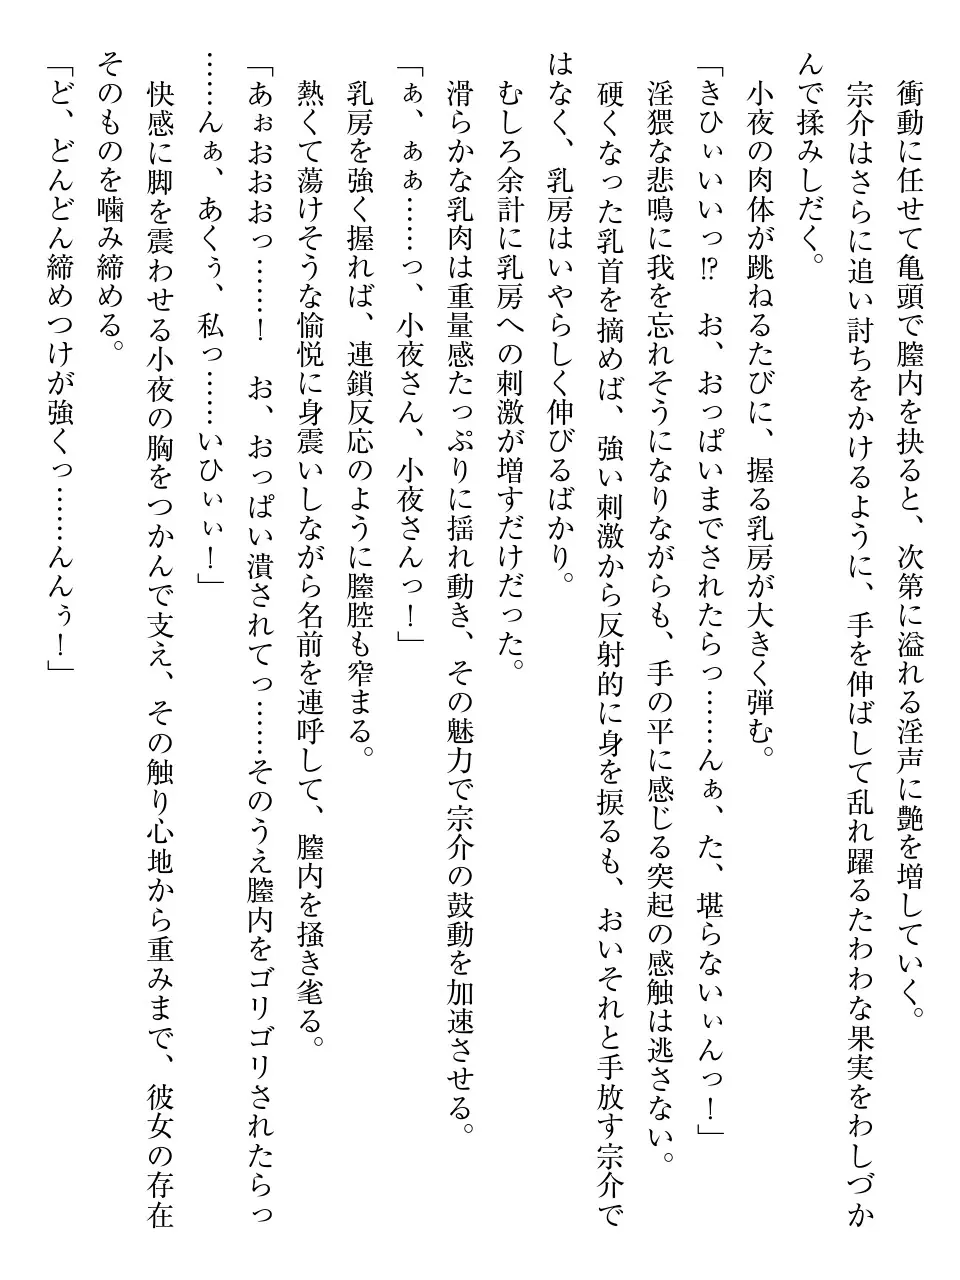 衝動に任せて亀頭で膣内を抉ると、次第に溢れる淫声に艶を増していく。
　宗介はさらに追い討ちをかけるように、手を伸ばして乱れ躍るたわわな果実をわしづか
んで揉みしだく。
　小夜の肉体が跳ねるたびに、握る乳房が大きく弾む。
「きひぃいいっ⁉　お、おっぱいまでされたらっ……んぁ、た、堪らないぃんっ！」
　淫猥な悲鳴に我を忘れそうになりながらも、手の平に感じる突起の感触は逃さない。
　硬くなった乳首を摘めば、強い刺激から反射的に身を捩るも、おいそれと手放す宗介で
はなく、乳房はいやらしく伸びるばかり。
　むしろ余計に乳房への刺激が増すだけだった。
　滑らかな乳肉は重量感たっぷりに揺れ動き、その魅力で宗介の鼓動を加速させる。
「ぁ、ぁぁ……っ、小夜さん、小夜さんっ！」
　乳房を強く握れば、連鎖反応のように膣腔も窄まる。
　熱くて蕩けそうな愉悦に身震いしながら名前を連呼して、膣内を掻き毟る。
「あぉおおおっ……！　お、おっぱい潰されてっ……そのうえ膣内をゴリゴリされたらっ
……んぁ、あくぅ、私っ……いひぃぃ！」
　快感に脚を震わせる小夜の胸をつかんで支え、その触り心地から重みまで、彼女の存在
そのものを噛み締める。
「ど、どんどん締めつけが強くっ……んんぅ！」